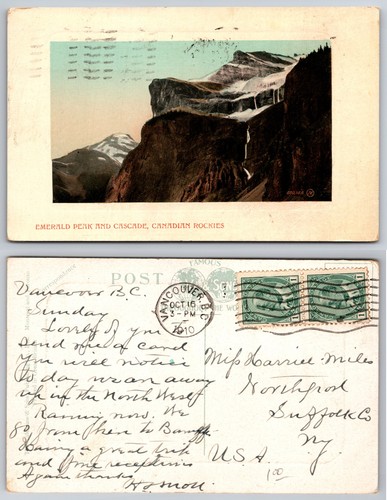 EMERALD PEAK AND CASCADE, CANADIAN ROCKIES
FAMOUS
POST
VANCOUVER, B.C.
OCT 16
3 - PM
1910
1 1
1 1
Vancover B.C.
Sunday
Lovely of you
send me a card
You will notice
To day we are away
up in the North West
Raining now. We
go from here to Banff
Having a great trip
and fine receptions
Again thanks
Miss Harriet Miles
Northport
Suffolk Co
Ny.
U.S.A.
1.00